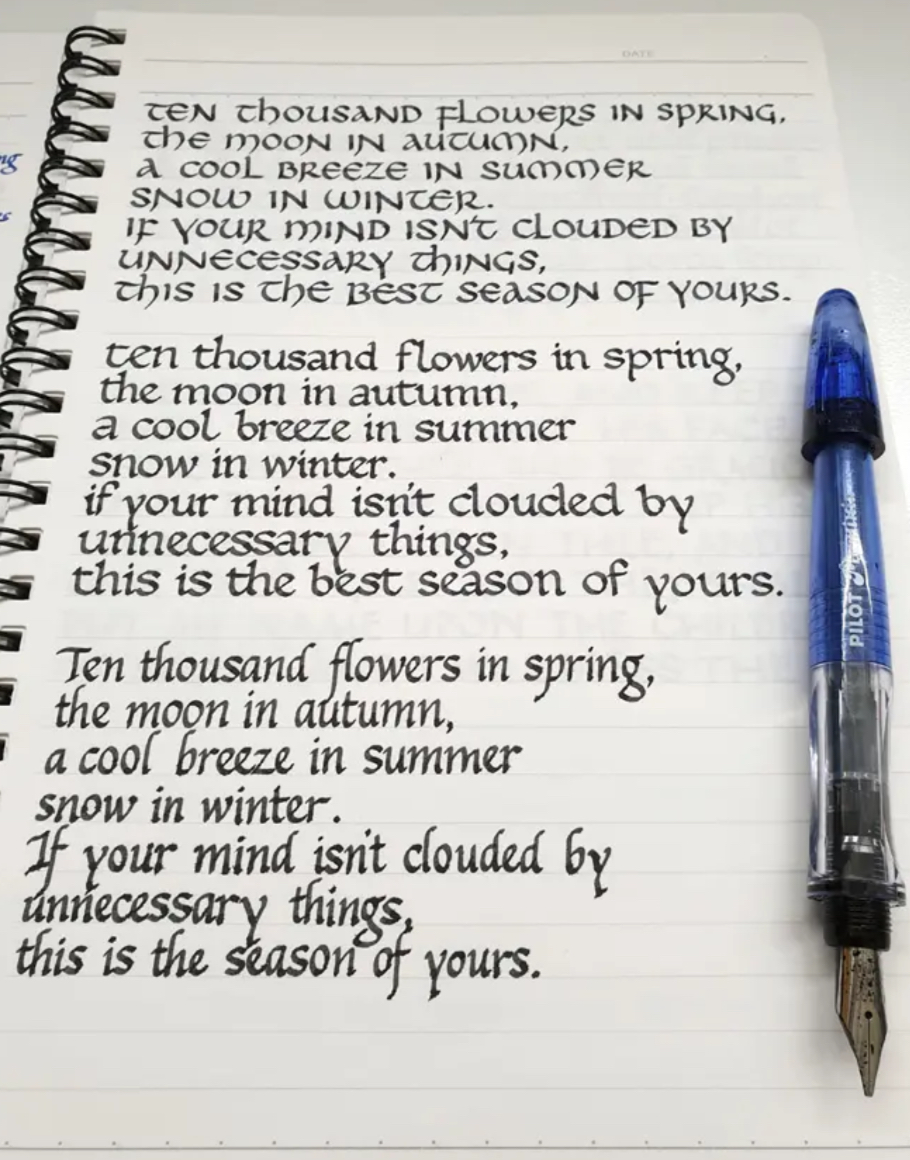 DATE
TEN ThOUSAND FLOWERS IN SPRING,
The MOON IN AUTUMN,
A COOL BREEZE IN SUMMER
SNOW IN WINTER.
IF YOUR MIND ISN'T CLOUDED BY
UNNECESSARY ThINGS,
ThIS IS The BEST SEASON OF YOURS.
ten thousand flowers in spring,
the moon in autumn,
a cool breeze in summer
snow in winter.
if your mind isn't clouded by
unnecessary things,
this is the best season of yours.
Ten thousand flowers in spring,
the moon in autumn,
a cool breeze in summer
snow in winter.
If your mind isn't clouded by
unnecessary things,
this is the season of yours.
PILOT